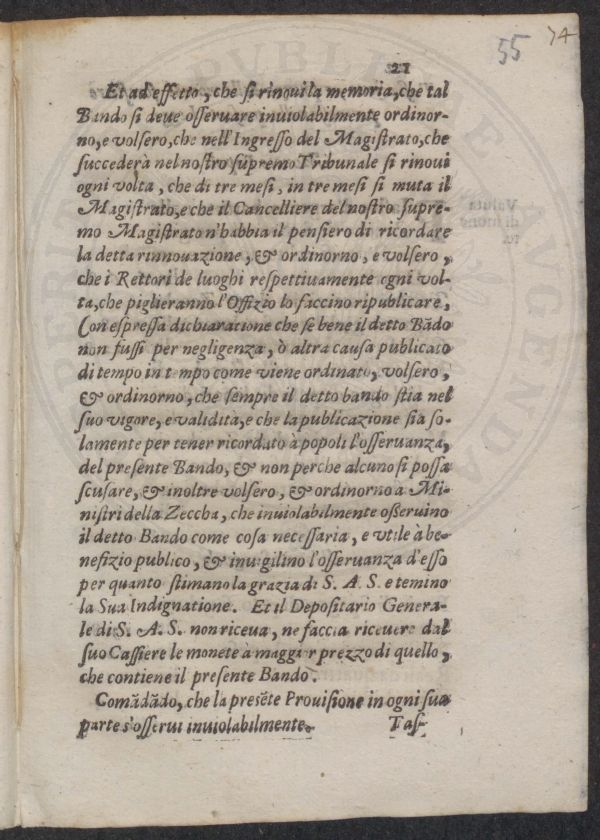 55 74
21
Et ad effetto, che si rinoui la memoria, che tal
Bando si deue osseruare inuiolabilmente ordinor-
no, e volsero, che nell'Ingresso del Magistrato, che
succederà nel nostro supremo Tribunale si rinoui
ogni volta, che di tre mesi, in tre mesi si muta il
Magistrato, e che il Cancelliere del nostro supre-
mo Magistrato n'habbia il pensiero di ricordare
la detta rinnouazione, & ordinorno, e volsero,
che i Rettori de luoghi respettiuamente ogni vol-
ta, che piglieranno l'Offizio lo faccino ripublicare,
Con espressa dichiaratione che se bene il detto Bādo
non fussi per negligenza, ò altra causa publicato
di tempo in tempo come viene ordinato, volsero,
& ordinorno, che sempre il detto bando stia nel
suo vigore, e validità, e che la publicazione sia so-
lamente per tener ricordato à popoli l'osseruanza,
del presente Bando, & non perche alcuno si possa
scusare, & inoltre volsero, & ordinorno a Mi-
nistri della Zeccha, che inuiolabilmente osseruino
il detto Bando come cosa necessaria, e vtile à be-
nefizio publico, & inuigilino l'osseruanza d'esso
per quanto stimano la grazia di S. A. S. e temino
la Sua Indignatione. Et il Depositario Genera-
le di S. A. S. non riceua, ne faccia riceuere dal
suo Cassiere le monete à maggior prezzo di quello,
che contiene il presente Bando.
Comādādo, che la presēte Prouisione in ogni sua
parte s'osserui inuiolabilmente.
Tas-